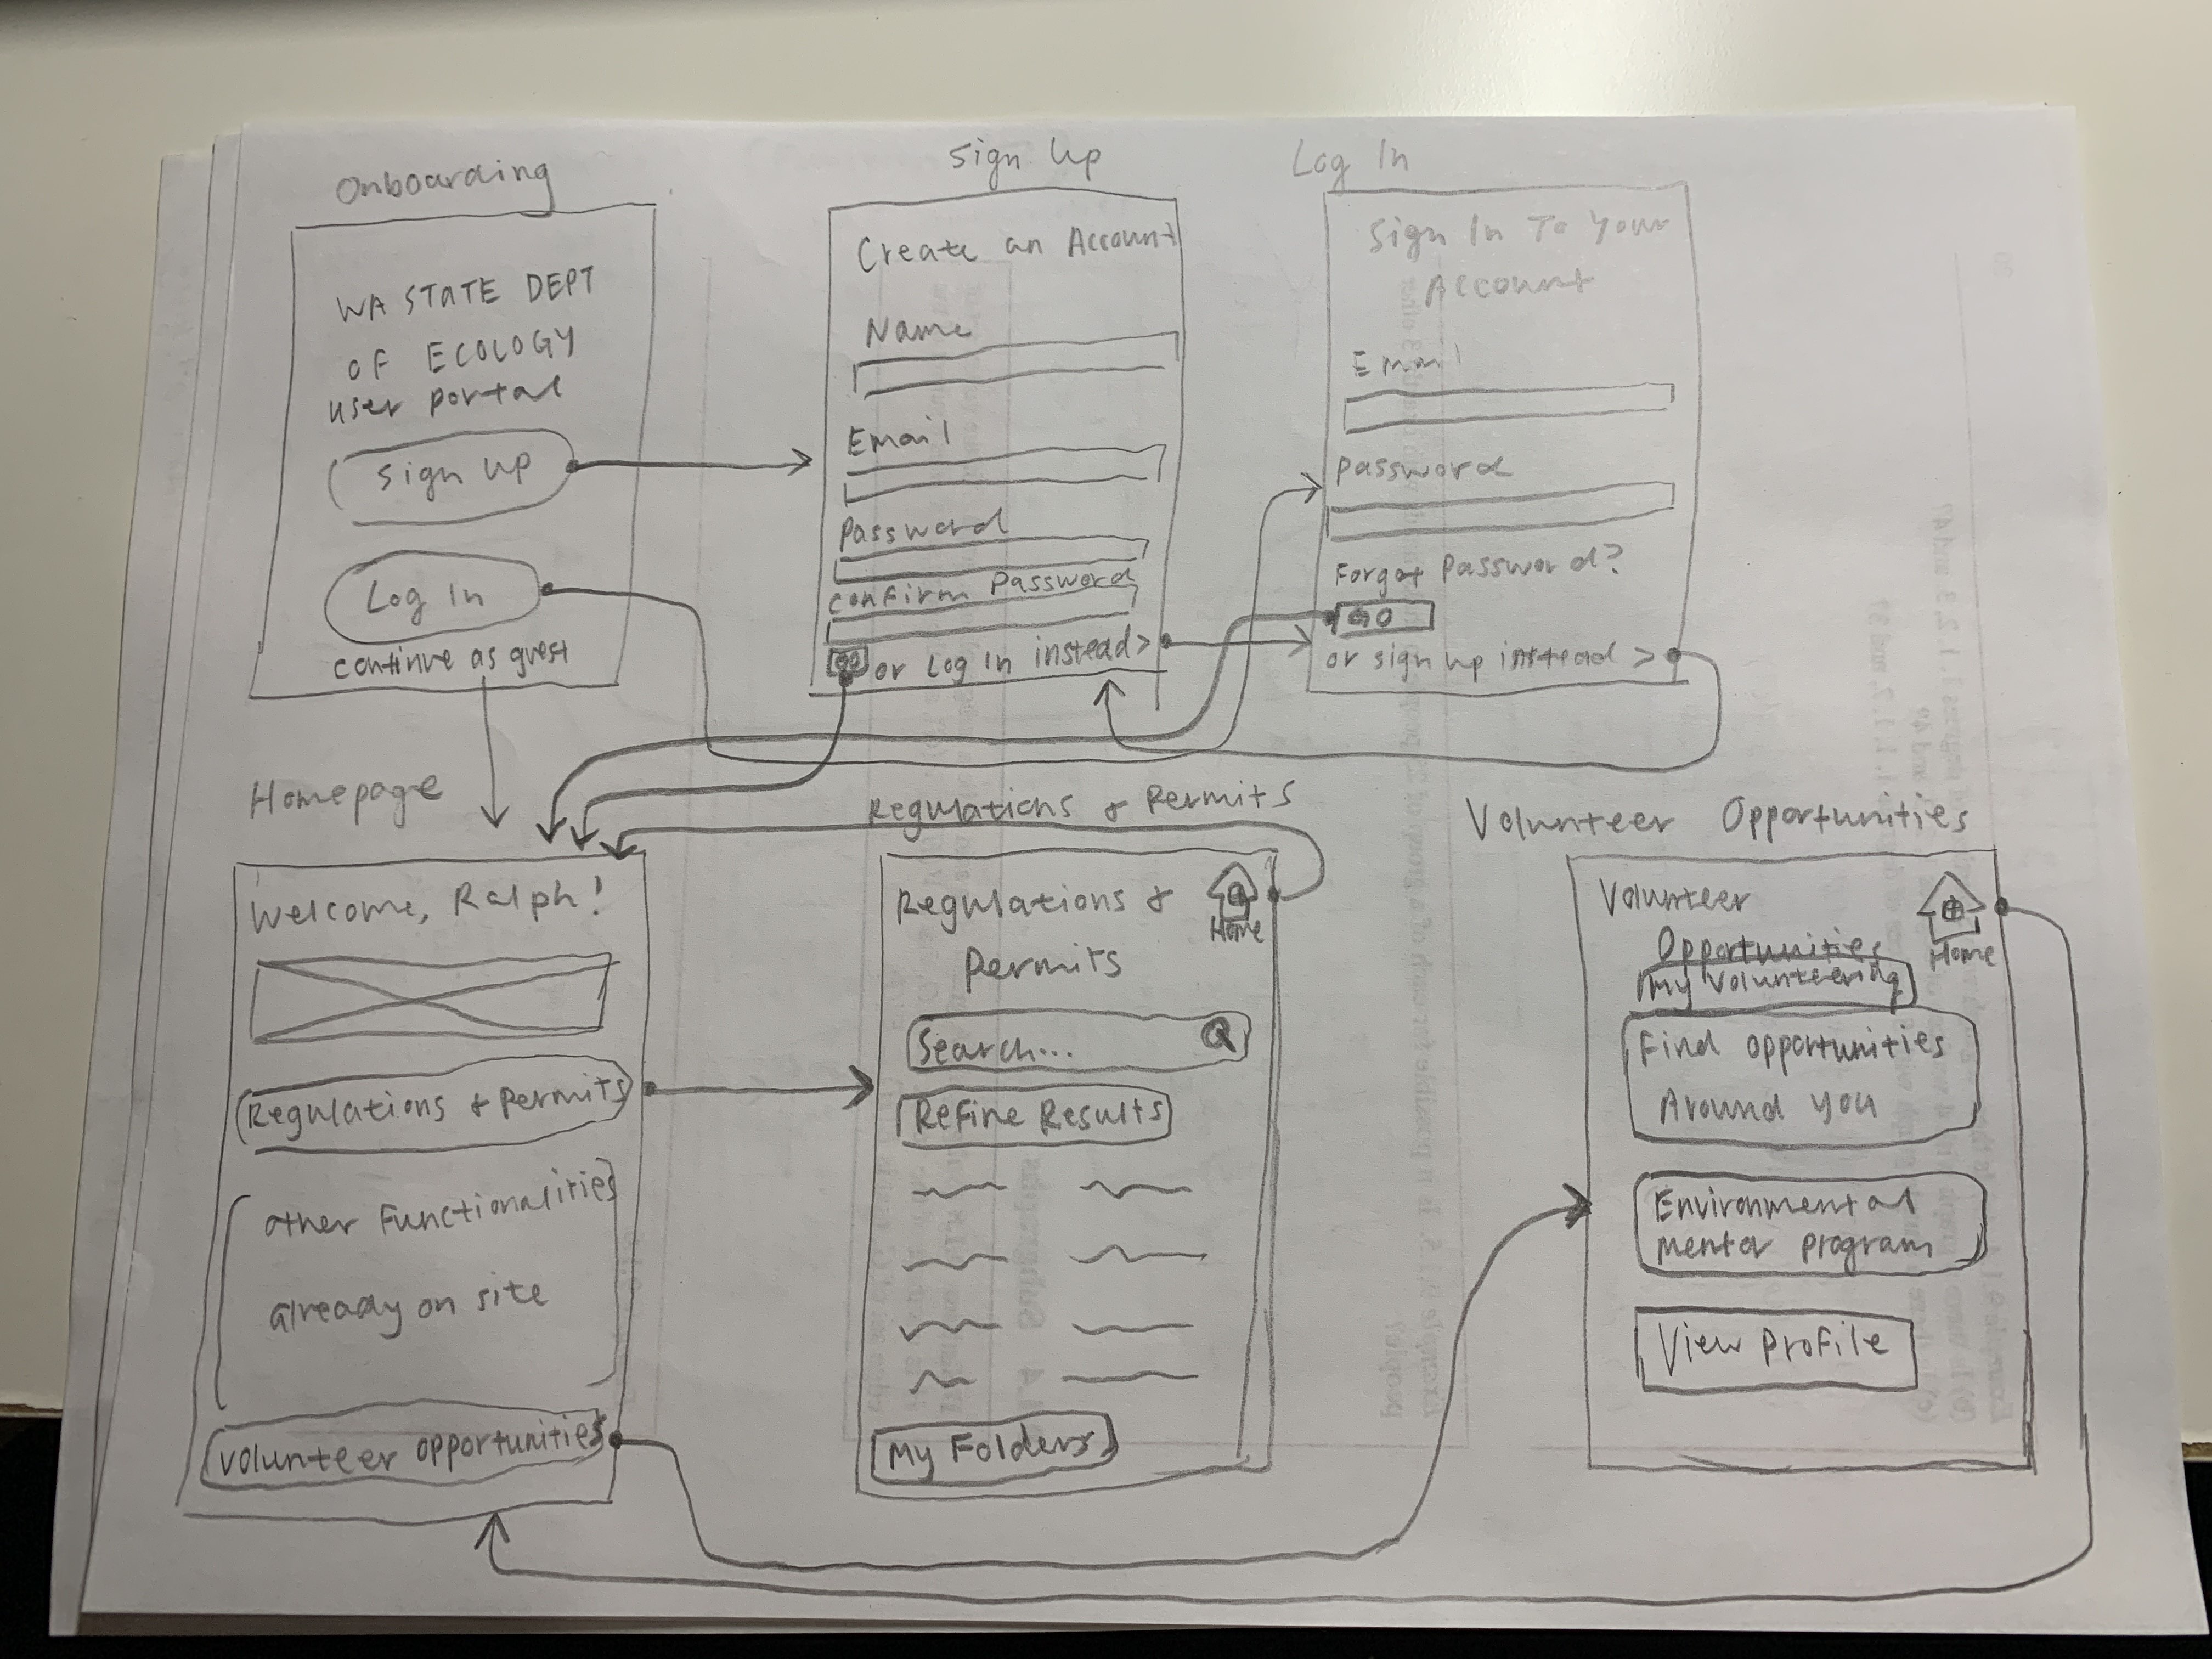 Onboarding
WA STATE DEPT
OF ECOLOGY
user portal
Sign Up
Log In
continue as guest
Sign Up
Create an Account
Name
Email
Password
confirm Password
GO or Log In instead >
Log In
Sign In To Your
Account
Email
Password
Forgot Password?
GO
or sign up instead >
Homepage
Welcome, Ralph!
Regulations & Permits
other Functionalities
already on site
Volunteer opportunities
Regulations & Permits
Regulations &
Permits
Home
Search...
Refine Results
My Folders
Volunteer Opportunities
Volunteer
Opportunities
Home
My Volunteering
Find opportunities
Around you
Environmental
mentor program
View Profile